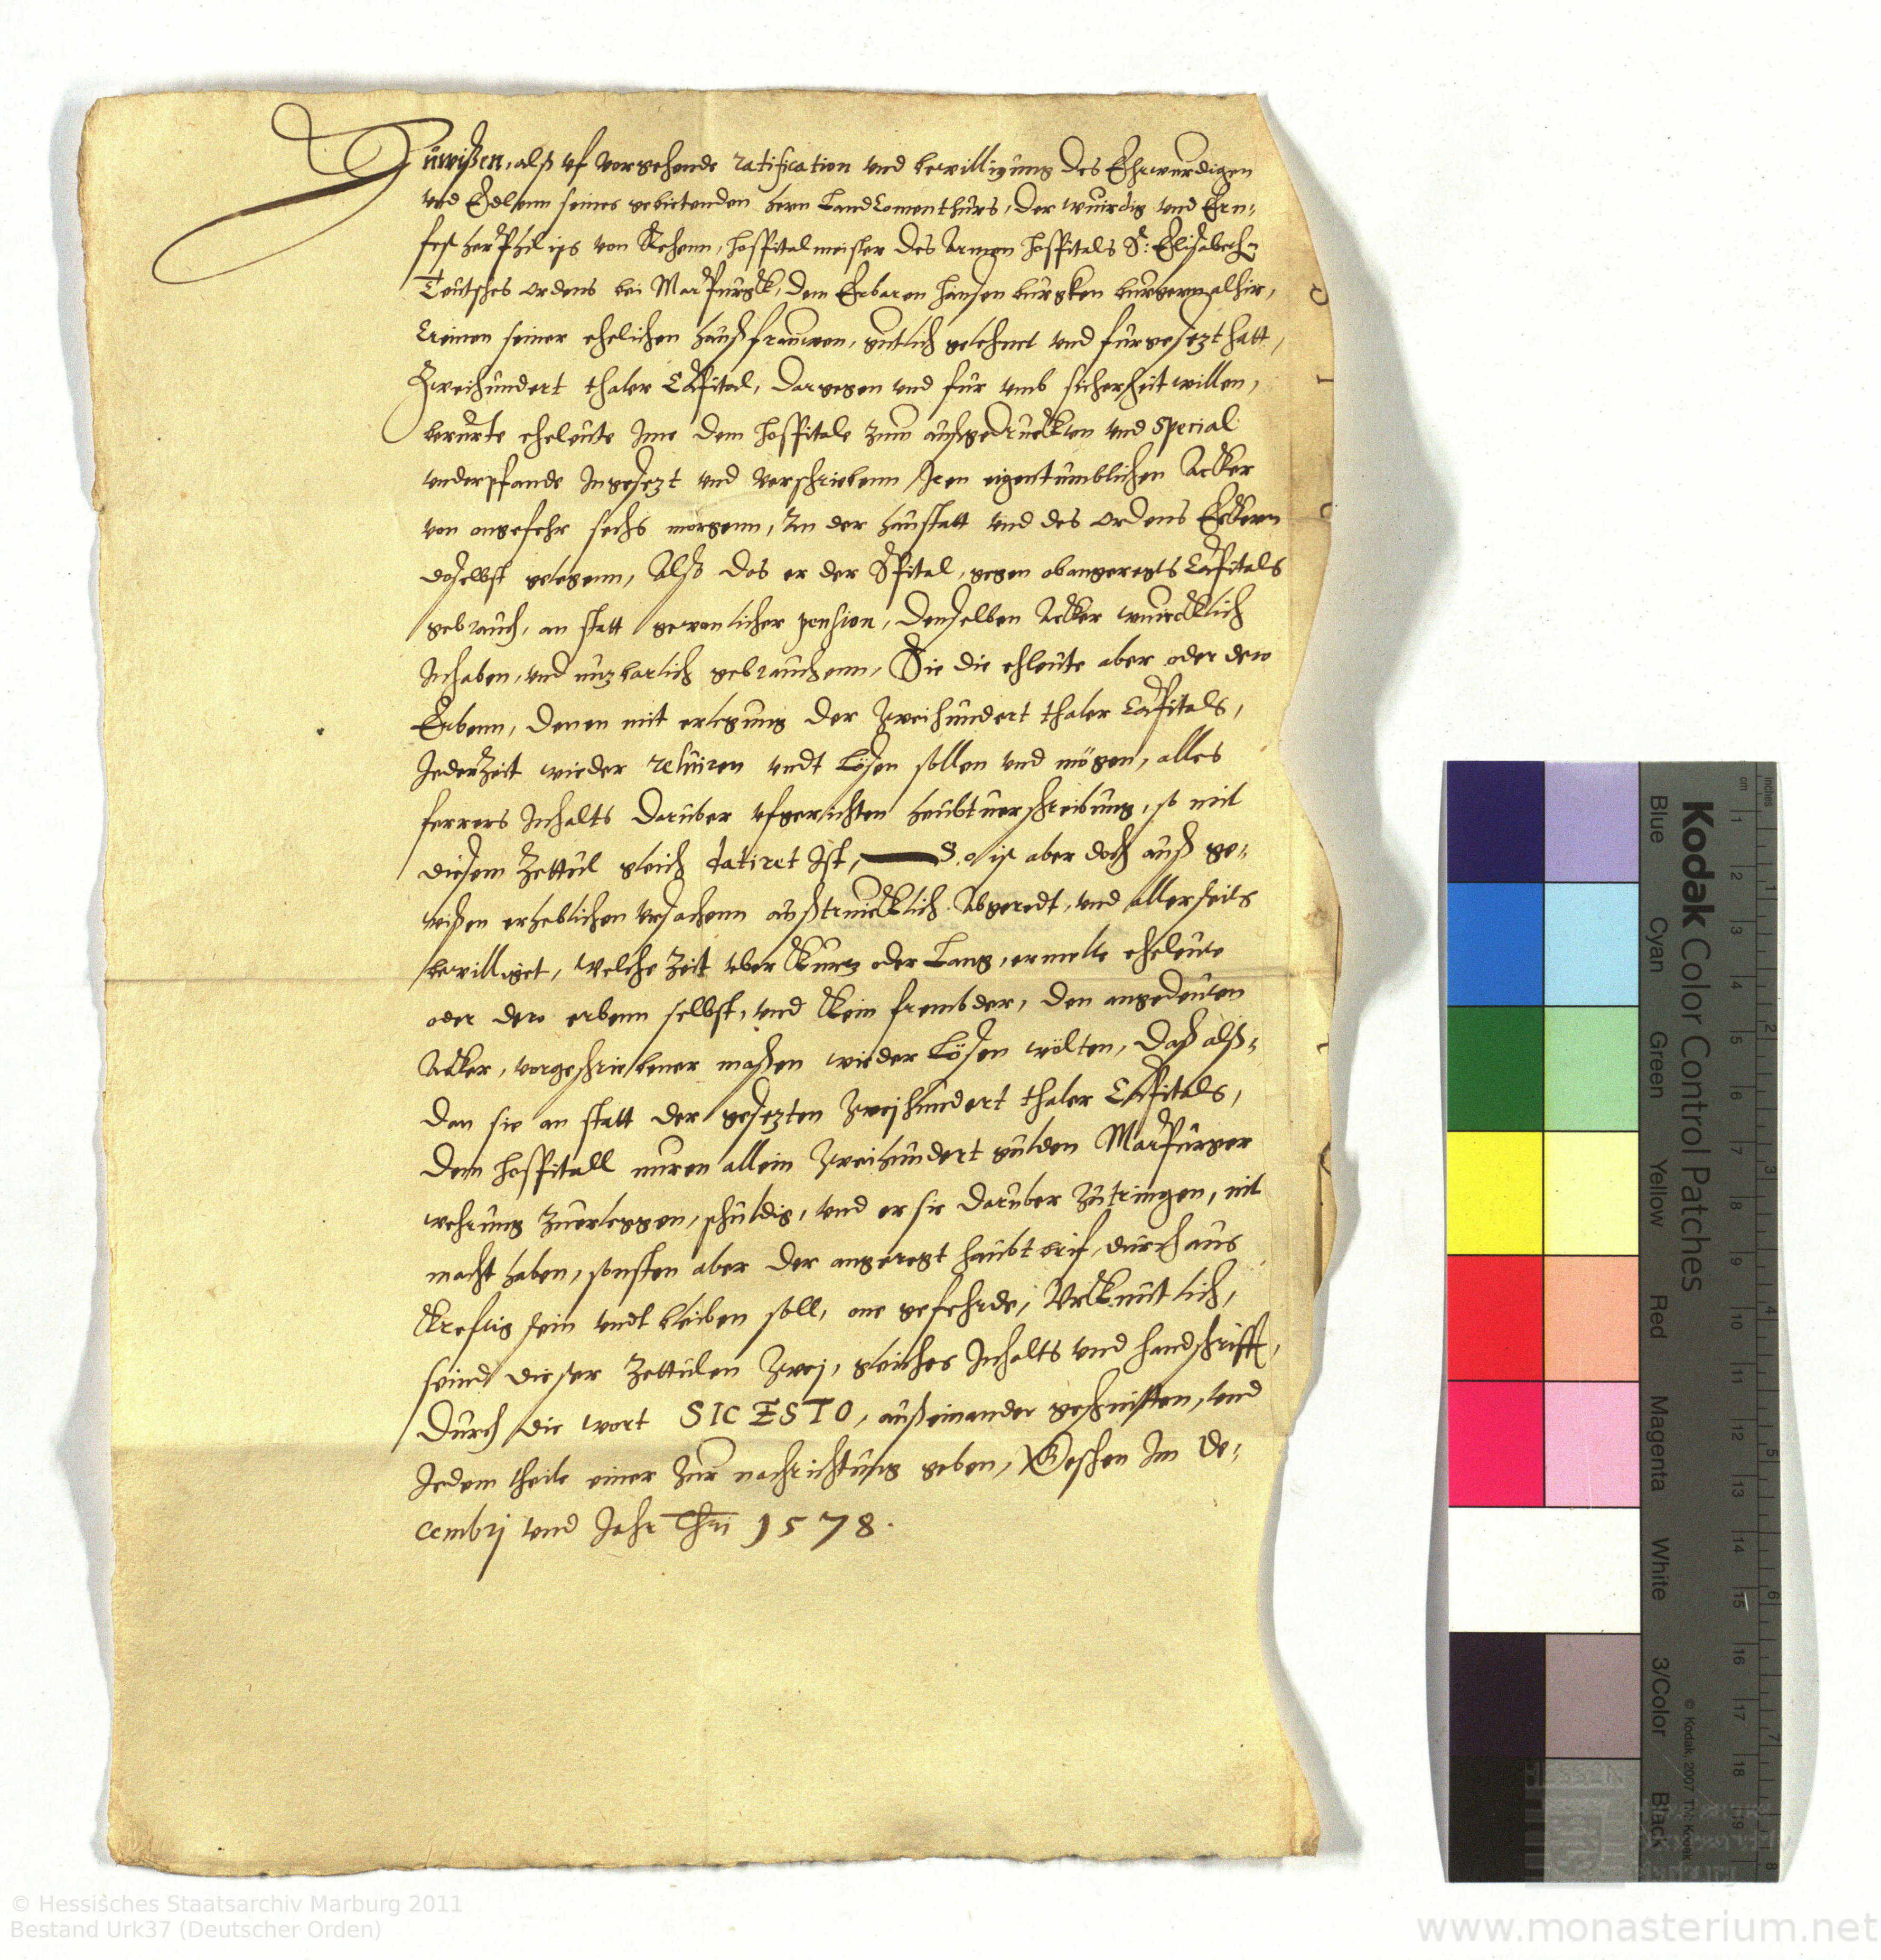 Zuwißen, alß vf vorgehende ratification vnd bewilligung des Ehrwurdigen
vnd Edlenn seines gebietenden hern Landcomenthurs, der wurdig vnd Ern-
fest her Philips von Rehenn, hospitalmeister des armen hospitals St: Elisabeth
Teutsches ordens bei Marpurgk, dem Erbaren Hansen burgken burgern alhir,
Creinen seiner ehelichen haußfrauwen, gutlich gelehnet vnd furgesezt hatt,
Zweihundert thaler Capital, dargegen vnd für vmb sicherheit willen,
berürte eheleute Ime dem hospitale zum außgedruckten vnd special
vnderpfande Ingesezt vnd verschriebenn Iren eigentumblichen Acker
von ongefehr sechs morgenn, In der haustatt vnd des ordens Eckern
doselbst gelegenn, Also das er der Spital, gegen obangeregts Capitals
gebrauch, an statt gewonlicher pension, denselben Acker wurcklich
Inhaben, vnd nuzbarlich gebrauchenn, Sie die ehleute aber oder dero
Erbenn, denen mit erlegung der Zweihundert thaler Capitals,
Jederzeit wieder reluiren vndt Lösen sollen vnd mögen, alles
ferrers Inhalts daruber vfgerichten heubtuerschreibung, so mit
diesem Zettul gleich datiret Ist, So ist aber doch auß ge-
wißen erheblichen vrsachenn außtrucklich Abgeredt, vnd allerseits
bewilliget, welche Zeit vber kurz oder Lang, ermelte eheleute
oder dero erbenn selbst, vnd kein frembder, den angedeuten
Acker, vorgeschriebener maßen wieder Lösen wölten, Daß alß-
dan sie an statt der gesezten Zweihundert thaler Capitals,
dem hospitall nuren allein Zweihundert gulden Marpurger
wehrung zuerleggen, schuldig, vnd er sie daruber zutringen, nit
macht haben, sonsten aber der angeregt haubtbrif, durchaus
Kreftig sein vndt bleiben soll, one gefehrde, Vrkuntlich,
seind dieser Zettulen Zwej, gleiches Inhalts vnd handschrifft,
Durch die wort SIC ESTO, außeinander geschnitten, vnd
Jedem theile einer Zur nachrichtung geben, Geschen Im De-
cembrj vnd Jahr Chri 1578.
Kodak Color Control Patches
Blue Cyan Green Yellow Red Magenta White 3/Color Black
cm 1 2 3 4 5 6 7 8 9 10 11 12 13 14 15 16 17 18 19
inches 1 2 3 4 5 6 7 8
© Hessisches Staatsarchiv Marburg 2011
Bestand Urk37 (Deutscher Orden)
www.monasterium.net